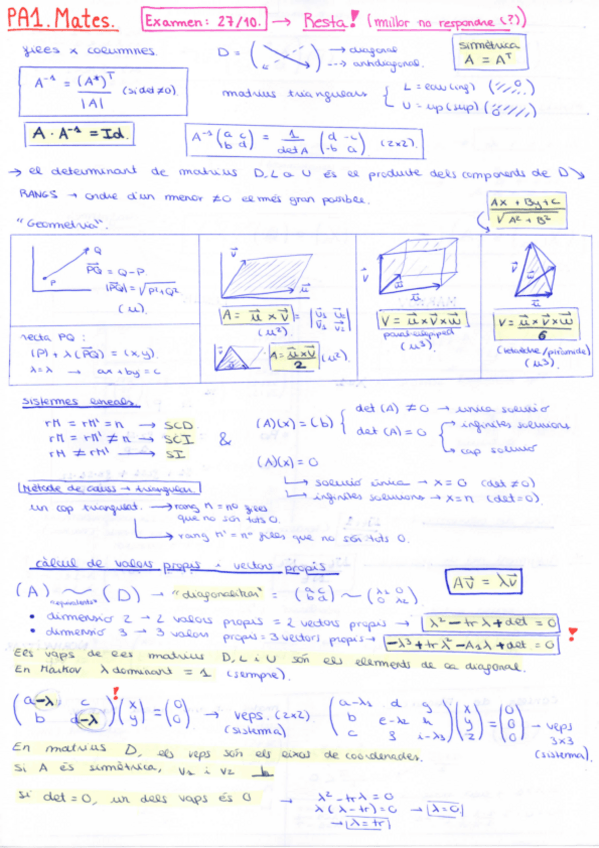 PA1. Mates. Examen: 27/10. → Resta! (millor no respondre (?))
files x columnes. D = ( ) → diagonal
--→ antidiagonal.
simètrica
A = Aᵀ
A⁻¹ = (A*)ᵀ / |A| (si det ≠ 0)
matrius triangulars { L = low (inf)
U = up (sup)
A · A⁻¹ = Id.
A⁻¹ (a c / b d) = 1/det A (d -c / -b a) (2x2).
→ el determinant de matrius D, L o U és el producte dels components de D
RANGS → ordre d'un menor ≠ 0 el més gran possible.
Ax + By + C / √A² + B²
"Geometria".
Q
P
PQ = Q - P
|PQ| = √P² + Q²
(u).
v
u
A = u x v = | u₁ u₂ / v₁ v₂ |
(u²)
A = u x v / 2 (u²).
V = u x v x w
paral·lelepíped
(u³)
V = u x v x w / 6
(tetraedre/piràmide)
(u³).
recta PQ:
(P) + λ(PQ) = (x y).
λ = λ → ax + by = c
Sistemes lineals.
rM = rM' = n → SCD
rM = rM' ≠ n → SCI
rM ≠ rM' → SI
&
(A)(x) = (b) { det (A) ≠ 0 → única solució
det (A) = 0 → infinites solucions
→ cap solució
(A)(x) = 0
→ solució única → x = 0 (det ≠ 0)
→ infinites solucions → x = n (det = 0).
Mètode de Gauss → triangular
un cop triangulat. → rang n = nº files
que no són tots 0.
→ rang n' = nº files que no són tots 0.
càlcul de valors propis i vectors propis
Av = λv
(A) ~ (D) → "diagonalitzar" = (a c / b d) ~ (λ₁ 0 / 0 λ₂)
equivalents
• dimensió 2 → 2 valors propis = 2 vectors propis → λ² - tr λ + det = 0
• dimensió 3 → 3 valors propis = 3 vectors propis → -λ³ + tr λ² - A₁λ + det = 0 !
Els vaps de les matrius D, L i U són els elements de la diagonal.
En Markov λ dominant = 1 (sempre).
(a-λ c / b d-λ)! (x / y) = (0 / 0) → veps. (2x2)
(sistema)
(a-λ₁ d g / b e-λ₂ h / c f i-λ₃) (x / y / z) = (0 / 0 / 0) → veps
3x3
(sistema).
En matrius D, els veps són els eixos de coordenades.
Si A és simètrica, v₁ i v₂ ⊥
Si det = 0, un dels vaps és 0 → λ² - tr λ = 0
λ(λ - tr) = 0 → λ = 0
→ λ = tr